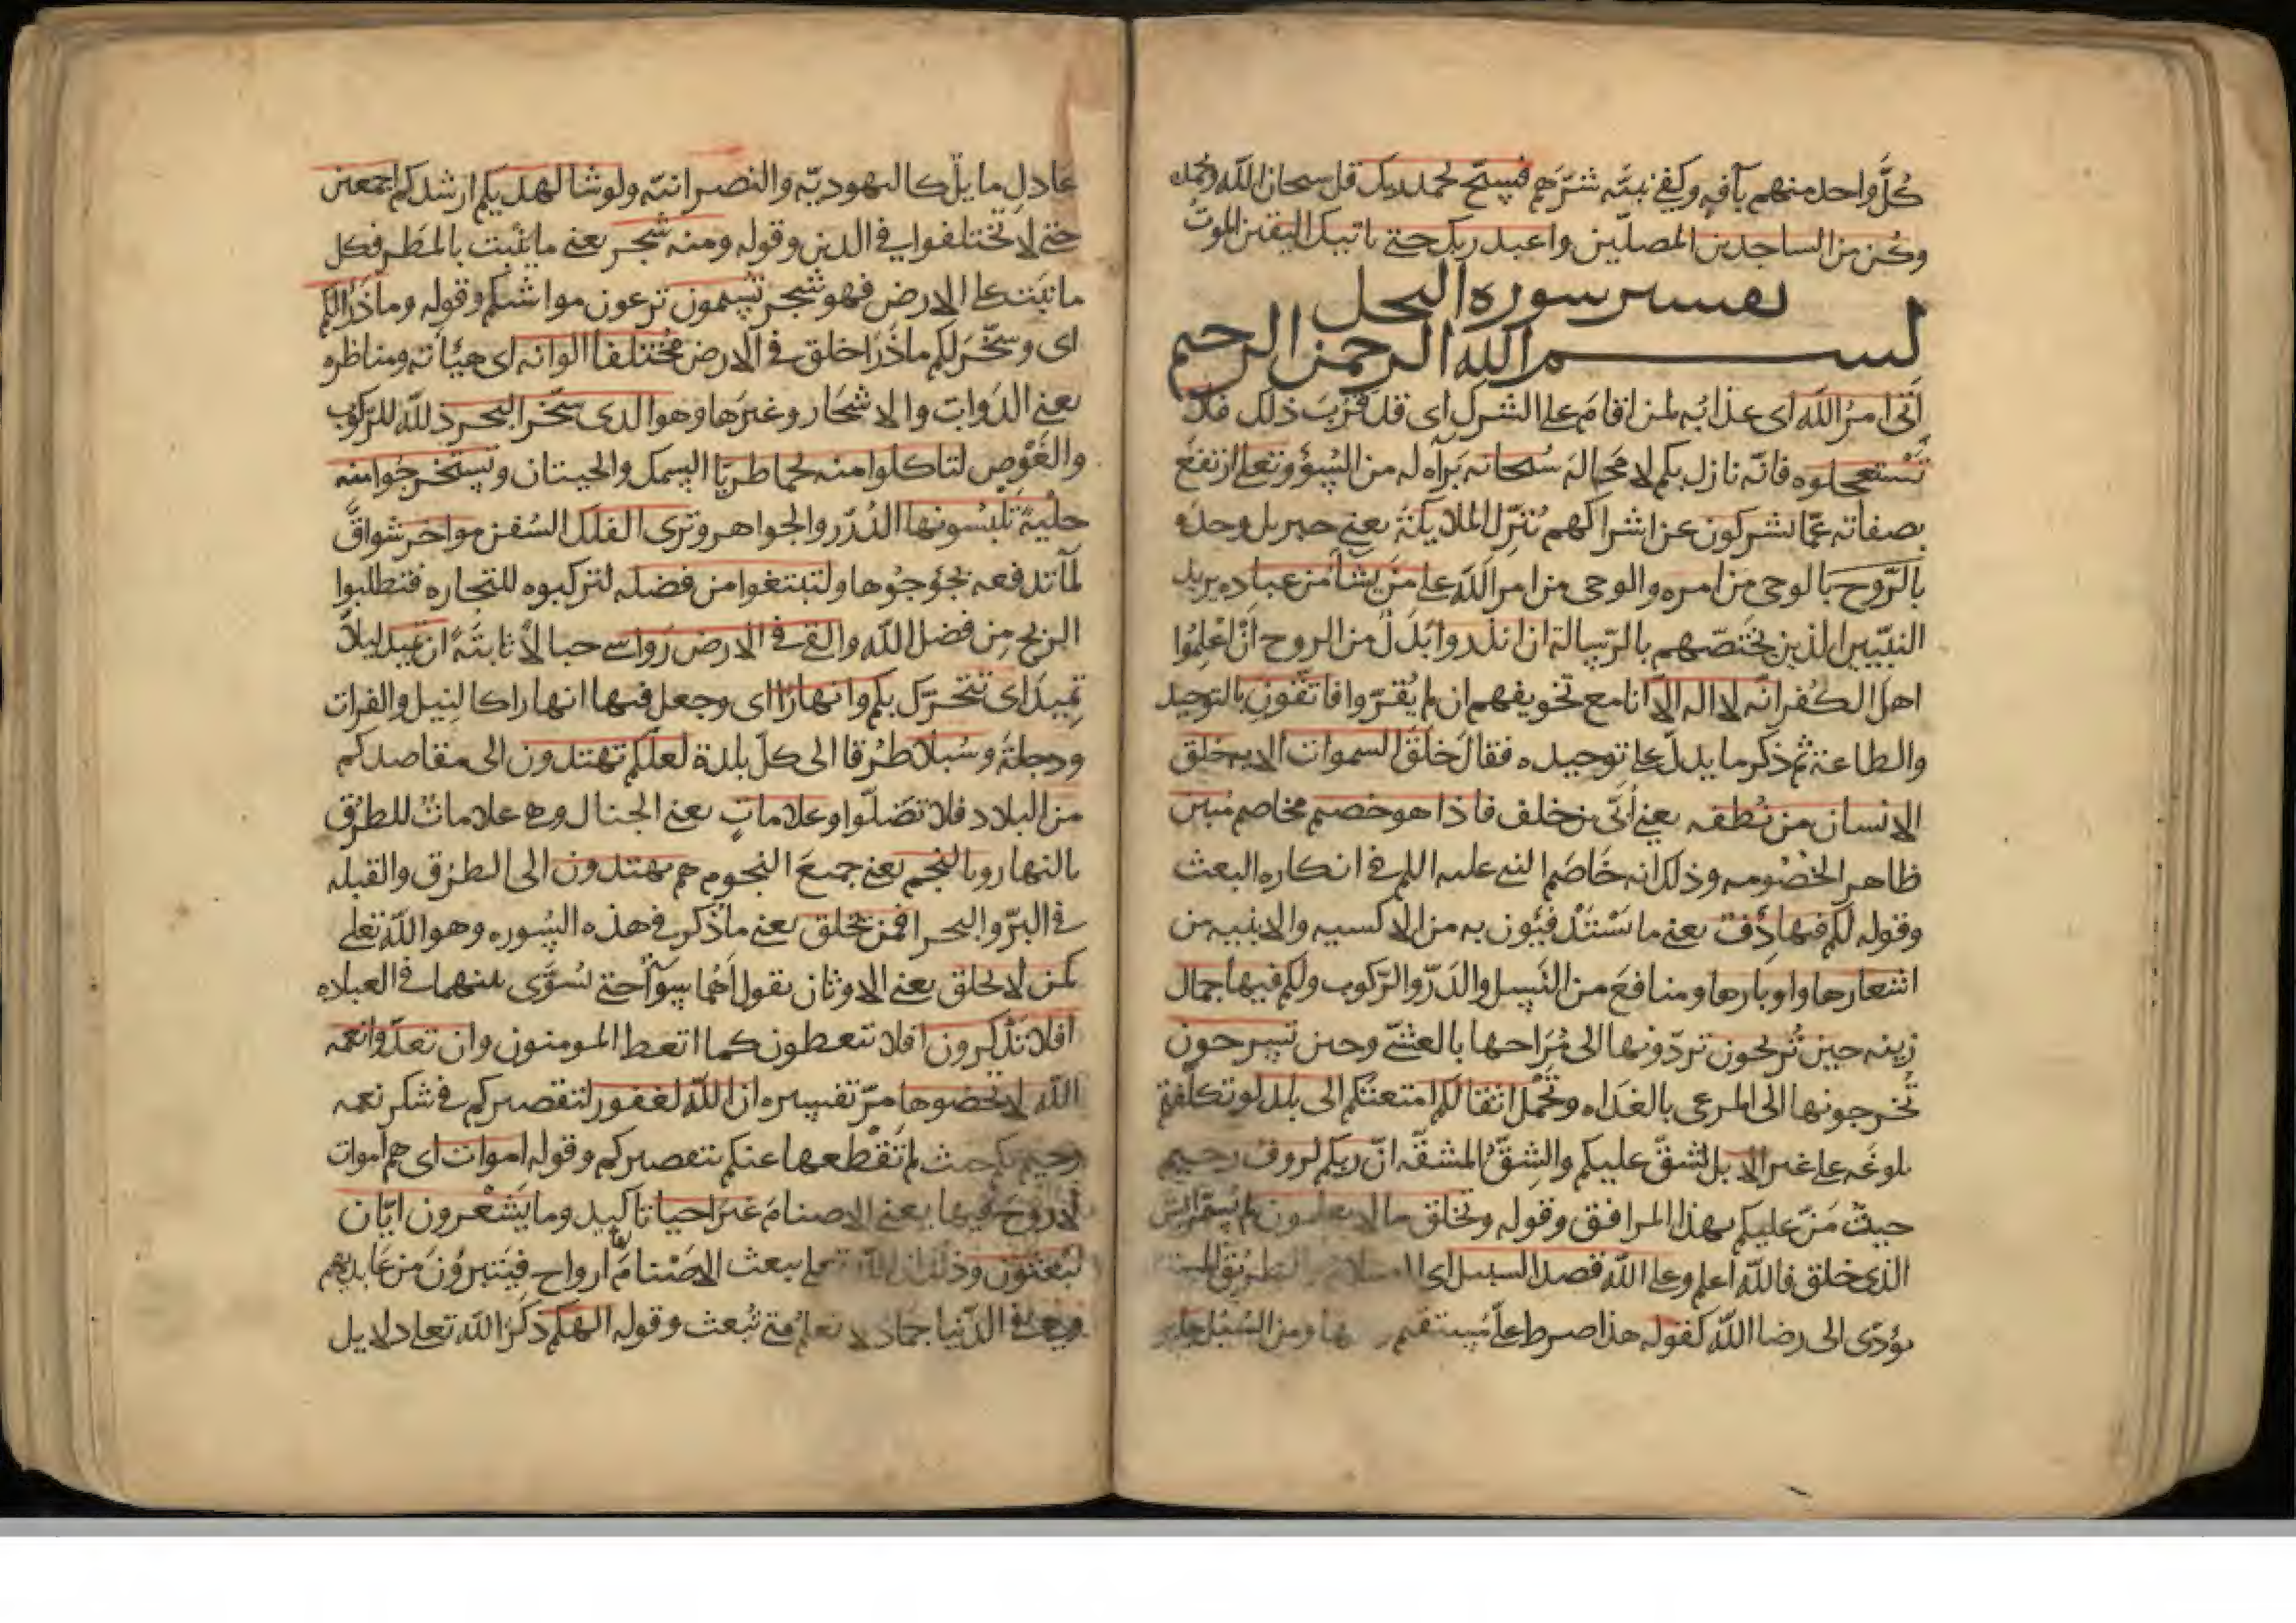 كلّ واحد منهم بآفه وكفى نبيّه شرّهم فسبّح بحمد ربك قل سبحان الله وبحمده
وكن من الساجدين المصلّين واعبد ربك حتى ياتيك اليقين الموت
تفسير سورة النحل
بسم الله الرحمن الرحيم
اتى امر الله اى عذابه لمن اقام على الشرك اى قد قرب ذلك فلا
تستعجلوه فانّه نازل بكم لا محالة سبحانه براه له من السوء وتعلى ارتفع
بصفاته عمّا يشركون عن اشراكهم ينزّل الملايكة يعنى جبريل وحده
بالرّوح بالوحى من امره والوحى من امر الله على من يشا من عباده يريد
النبيّين الذين يختصّهم بالرّسالة ان انذروا بدل من الروح ان اعلموا
اهل الكفر انّه لا اله الا انا مع تخويفهم ان لم يقرّوا فاتقون بالتوحيد
والطاعة ثم ذكر ما يدلّ على توحيده فقال خلق السموات الايه خلق
الانسان من نطفه يعنى أبيّ بن خلف فاذا هو خصيم مخاصم مبين
ظاهر الخصومه وذلك انه خاصم النبى عليه السلم فى انكاره البعث
وقوله لكم فيها دفء يعنى ما تستدفئون به من الاكسيه والابنيه من
اشعارها واوبارها ومنافع من النسل والدرّ والرّكوب ولكم فيها جمال
زينه حين تريحون تردّونها الى مراحها بالعشىّ وحين تسرحون
تخرجونها الى المرعى بالغداه وتحمل اثقالكم امتعتكم الى بلد لو تكلّفتم
بلوغه على غير الابل لشقّ عليكم والشقّ المشقّه انّ ربكم لرءوف رحيم
حيث منّ عليكم بهذا المرافق وقوله ويخلق ما لا يعلمون لم يسمّ اليس
الذى خلق فالله اعلم وعلى الله قصد السبيل اى الاسلام والطريق المستقيم
يؤدّى الى رضا الله كقوله هذا صرط علىّ مستقيم ومنها ومن السبل جاير
عادل مايل كاليهوديّه والنصرانيّه ولو شا لهديكم ارشدكم اجمعين
حتى لا تختلفوا فى الدين وقوله ومنه شجر يعنى ما ينبت بالمطر فكل
ما نبت على الارض فهو شجر تسيمون ترعون مواشيكم وقوله وما ذرا لكم
اى وسخّر لكم ما ذرا خلق فى الارض مختلفا الوانه اى هيأته ومناظره
يعنى الدوابّ والاشجار وغيرها وهو الذى سخّر البحر ذلله للرّكوب
والغوص لتاكلوا منه لحما طريّا السمك والحيتان وتستخرجوا منه
حليةً تلبسونها الدّرر والجواهر وترى الفلك السفن مواخر شواقّ
لماتدفعه بجؤجؤها ولتبتغوا من فضله لتركبوه للتجاره فتطلبوا
الربح من فضل الله والقى فى الارض رواسى جبالا ثابتةً ان تميد ليلا
تميد اى تتحرّك بكم وانهارا اى وجعل فيها انهارا كالنيل والفرات
ودجلة وسبلا طرقا الى كلّ بلدة لعلّكم تهتدون الى مقاصدكم
من البلاد فلا تضلّوا وعلامات يعنى الجبال وهى علامات للطرق
بالنهار وبالنجم يعنى جميع النجوم هم يهتدون الى الطرق والقبله
فى البرّ والبحر افمن يخلق يعنى ما ذكر فى هذه السوره وهو الله تعلى
كمن لا يخلق يعنى الاوثان يقول أهما سوآ حتى يسوّى بينهما فى العباده
افلا تذكرون افلا تتعظون كما اتعظ المومنون وان تعدّوا نعمه
الله لا تحصوها مرّ تفسيره ان الله لغفور لتقصيركم فى شكر نعمه
رحيم بكم حيث لم تقطعها عنكم بتقصيركم وقوله اموات اى هم اموات
لا روح فيها يعنى الاصنام غير احيا تاكيد وما يشعرون ايّان
يبعثون وذلك ان الله تعلى يبعث الاصنام لها ارواح فيتبرّون من عابديهم
وهى فى الدّنيا جماد لا تعلم متى تبعث وقوله الهكم ذكر الله تعلى دلايل